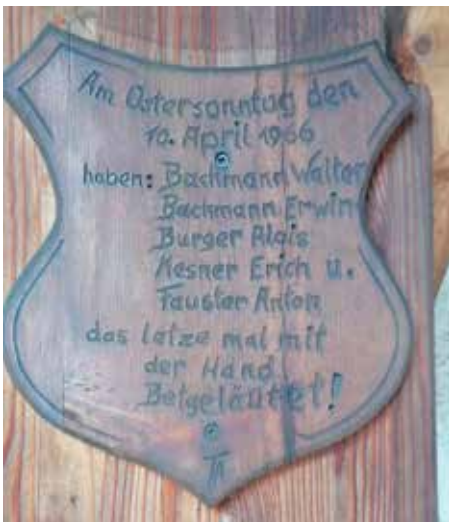 Am Ostersonntag den
10. April 1966
haben: Bachmann Walter
Bachmann Erwin
Burger Alois
Kesner Erich u.
Fauster Anton
das letze mal mit
der Hand
Betgeläutet!